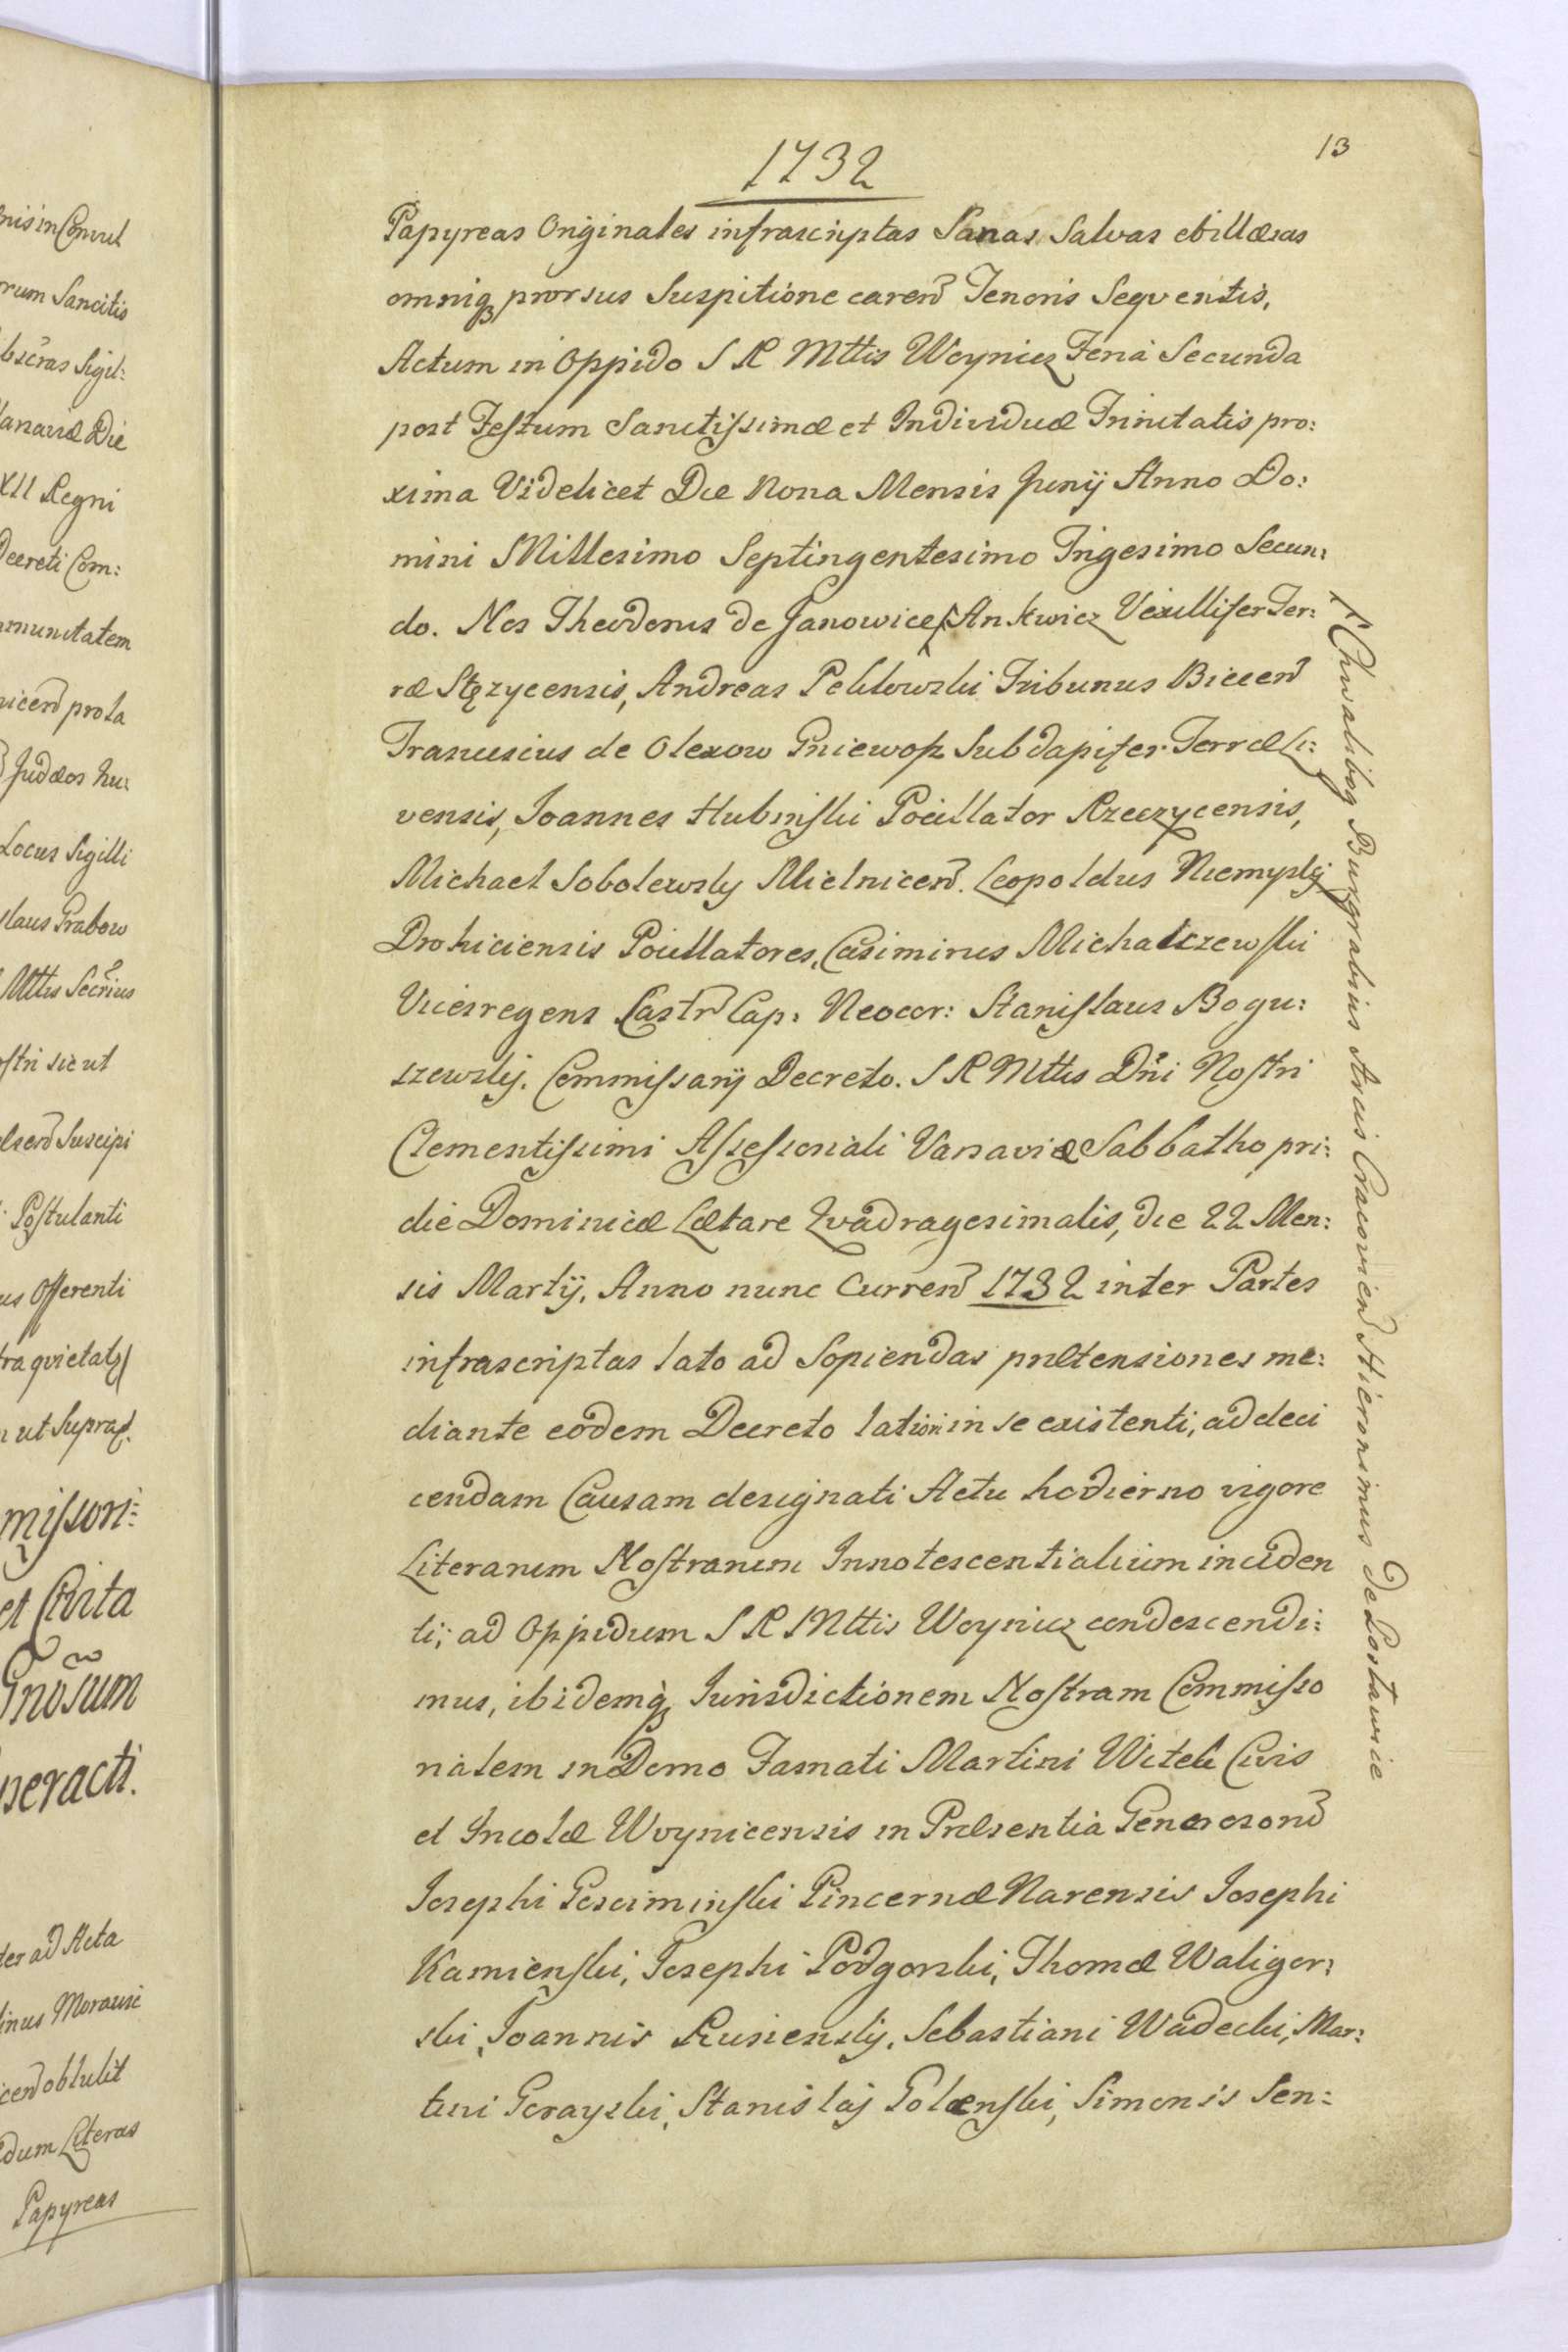 nis in Convul
rum Sancitis
bscras Sigil:
Varsaviæ Die
XII Regni
Decreti Com:
munitatem
nicen prola
Judæos hu:
Locus Sigilli
slaus Grabow
Mttis Secrius
ostri sicut
elsen Suscipi
Postulanti
us Offerenti
ra qvietatq
n ut Supra
missori:
et Civita
Gnosum
peracti.
ter ad Acta
inus Morausi
icen obtulit
dum Literas
Papyreas
13
1732
Papyreas Originales infrascriptas Sanas Salvas et illæsas
omniq3 prorsus Suspitione caren Tenoris Seqventis,
Actum in Oppido S R Mttis Woynicz Feria Secunda
post Festum Sanctissimæ et Individuæ Trinitatis pro:
xima Videlicet Die Nona Mensis Junij Anno Do:
mini Millesimo Septingentesimo Trigesimo Secun:
do. Nos Theodorus de Janowice Ankwicz Vexillifer Ter:
ræ Stęzycensis, Andreas Pełdowski Tribunus Biecen
Franciscus de Olexow Gniewosz Subdapifer Terræ Li:
vensis, Joannes Hubinski Pocillator Rzeczycensis,
Michael Sobolewsky Mielnicen. Leopoldus Niemysky
Drohiciensis Pocillatores, Casimirus Michalczewski
Vicesregens Castr Cap: Neocor: Stanislaus Bogu:
szewskij. Commissarij Decreto. S R Mttis Dni Nostri
Clementissimi Assessoriali Varsaviæ Sabbatho pri:
die Dominicæ Lætare Qvadragesimalis, die 22 Men:
sis Martij, Anno nunc Curren 1732 inter Partes
infrascriptas lato ad Sopiendas prætensiones me:
diante eodem Decreto lationi in se existenti, ad deci
cendam Causam designati Actu hodierno vigore
Literarum Nostrarum Innotescentialium inciden
ti; ad Oppidum S R Mttis Woynicz condescendi:
mus, ibidemq3 Jurisdictionem Nostram Commisso
rialem in Domo Famati Martini Witek Civis
et Incolæ Woynicensis in Præsentia Generosor
Josephi Gosciminski Pincernæ Narensis Josephi
Kamienski, Josephi Podgorski, Thomæ Waligor:
ski, Joannis Rusienskij, Sebastiani Wadecki, Mar:
tini Gorayski, Stanislaj Golænski, Simonis Sen:
Chwalibog Burgrabius Arcis Cracovien Hieronimus de Postawice